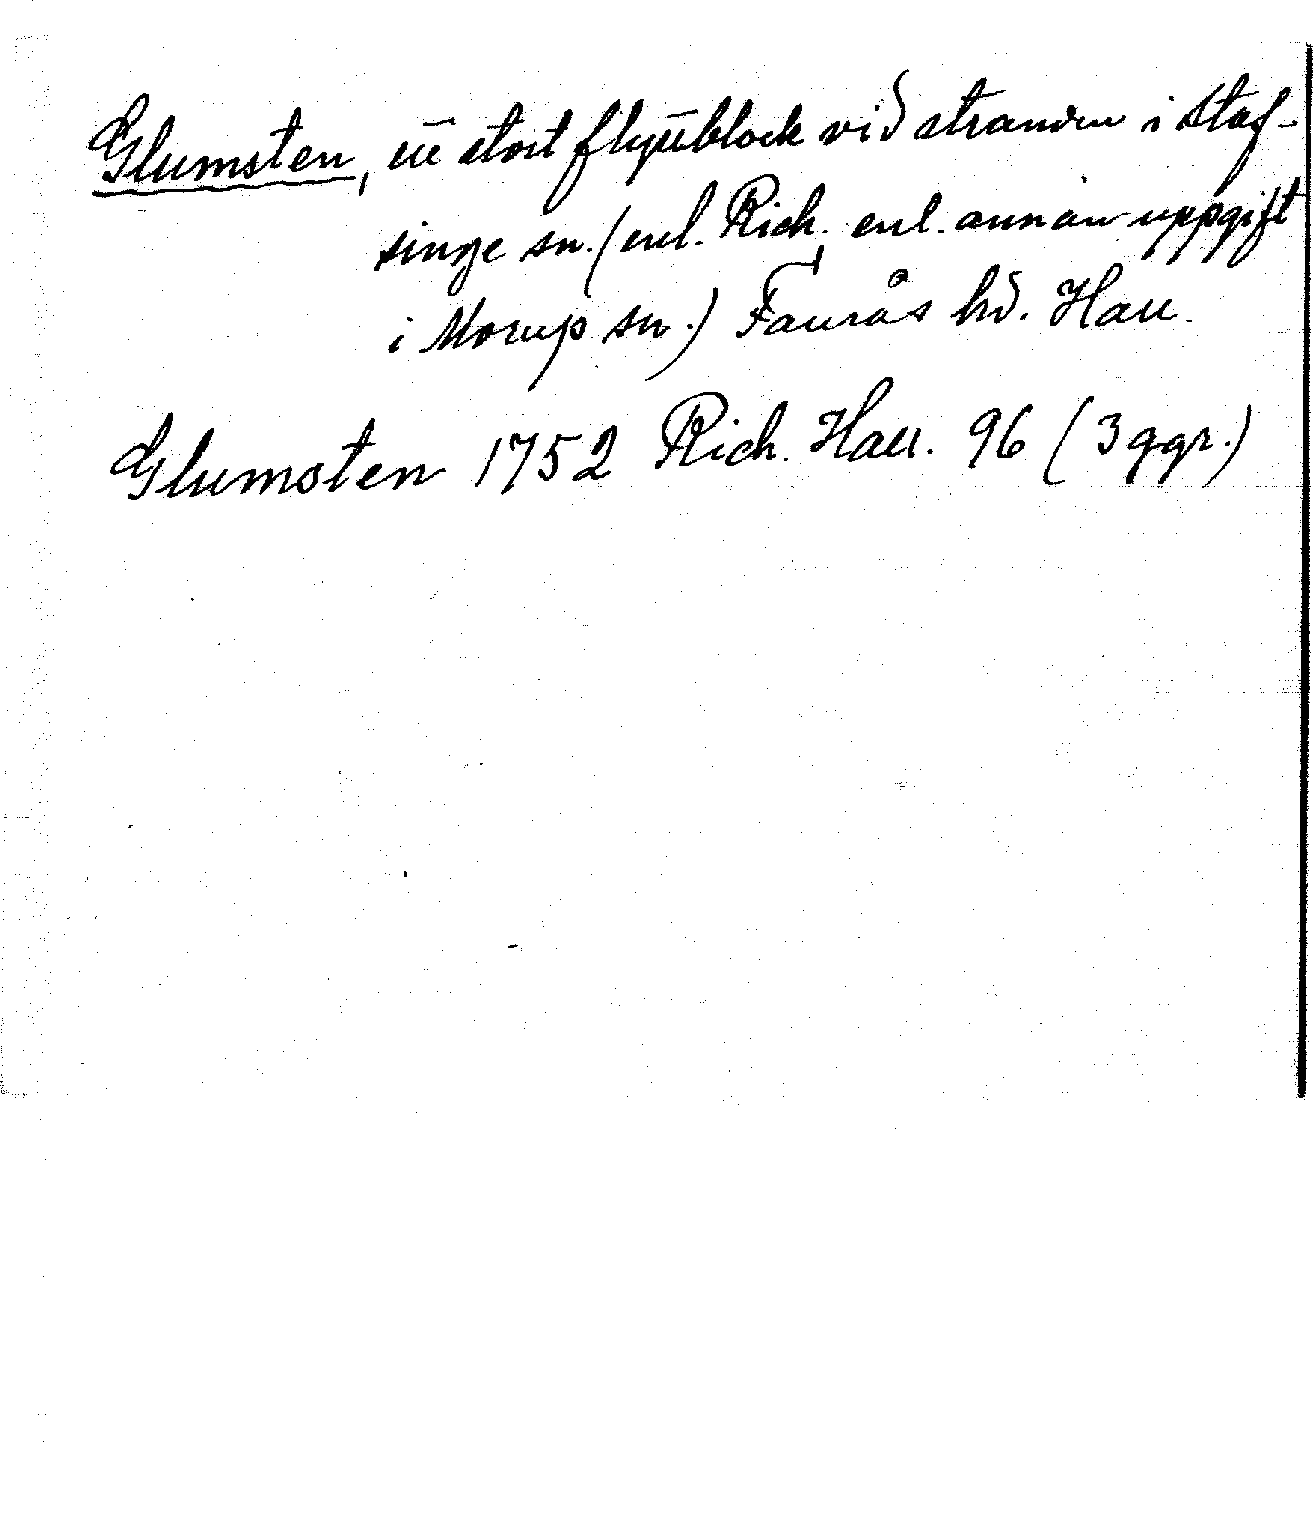 Glumsten, ett stort flyttblock vid stranden i Staf-
singe sn. (enl. Rich., enl. annan uppgift
i Morup sn.) Faurås hd. Hall.
Glumsten 1752 Rich. Hall. 96 (3 ggr.)